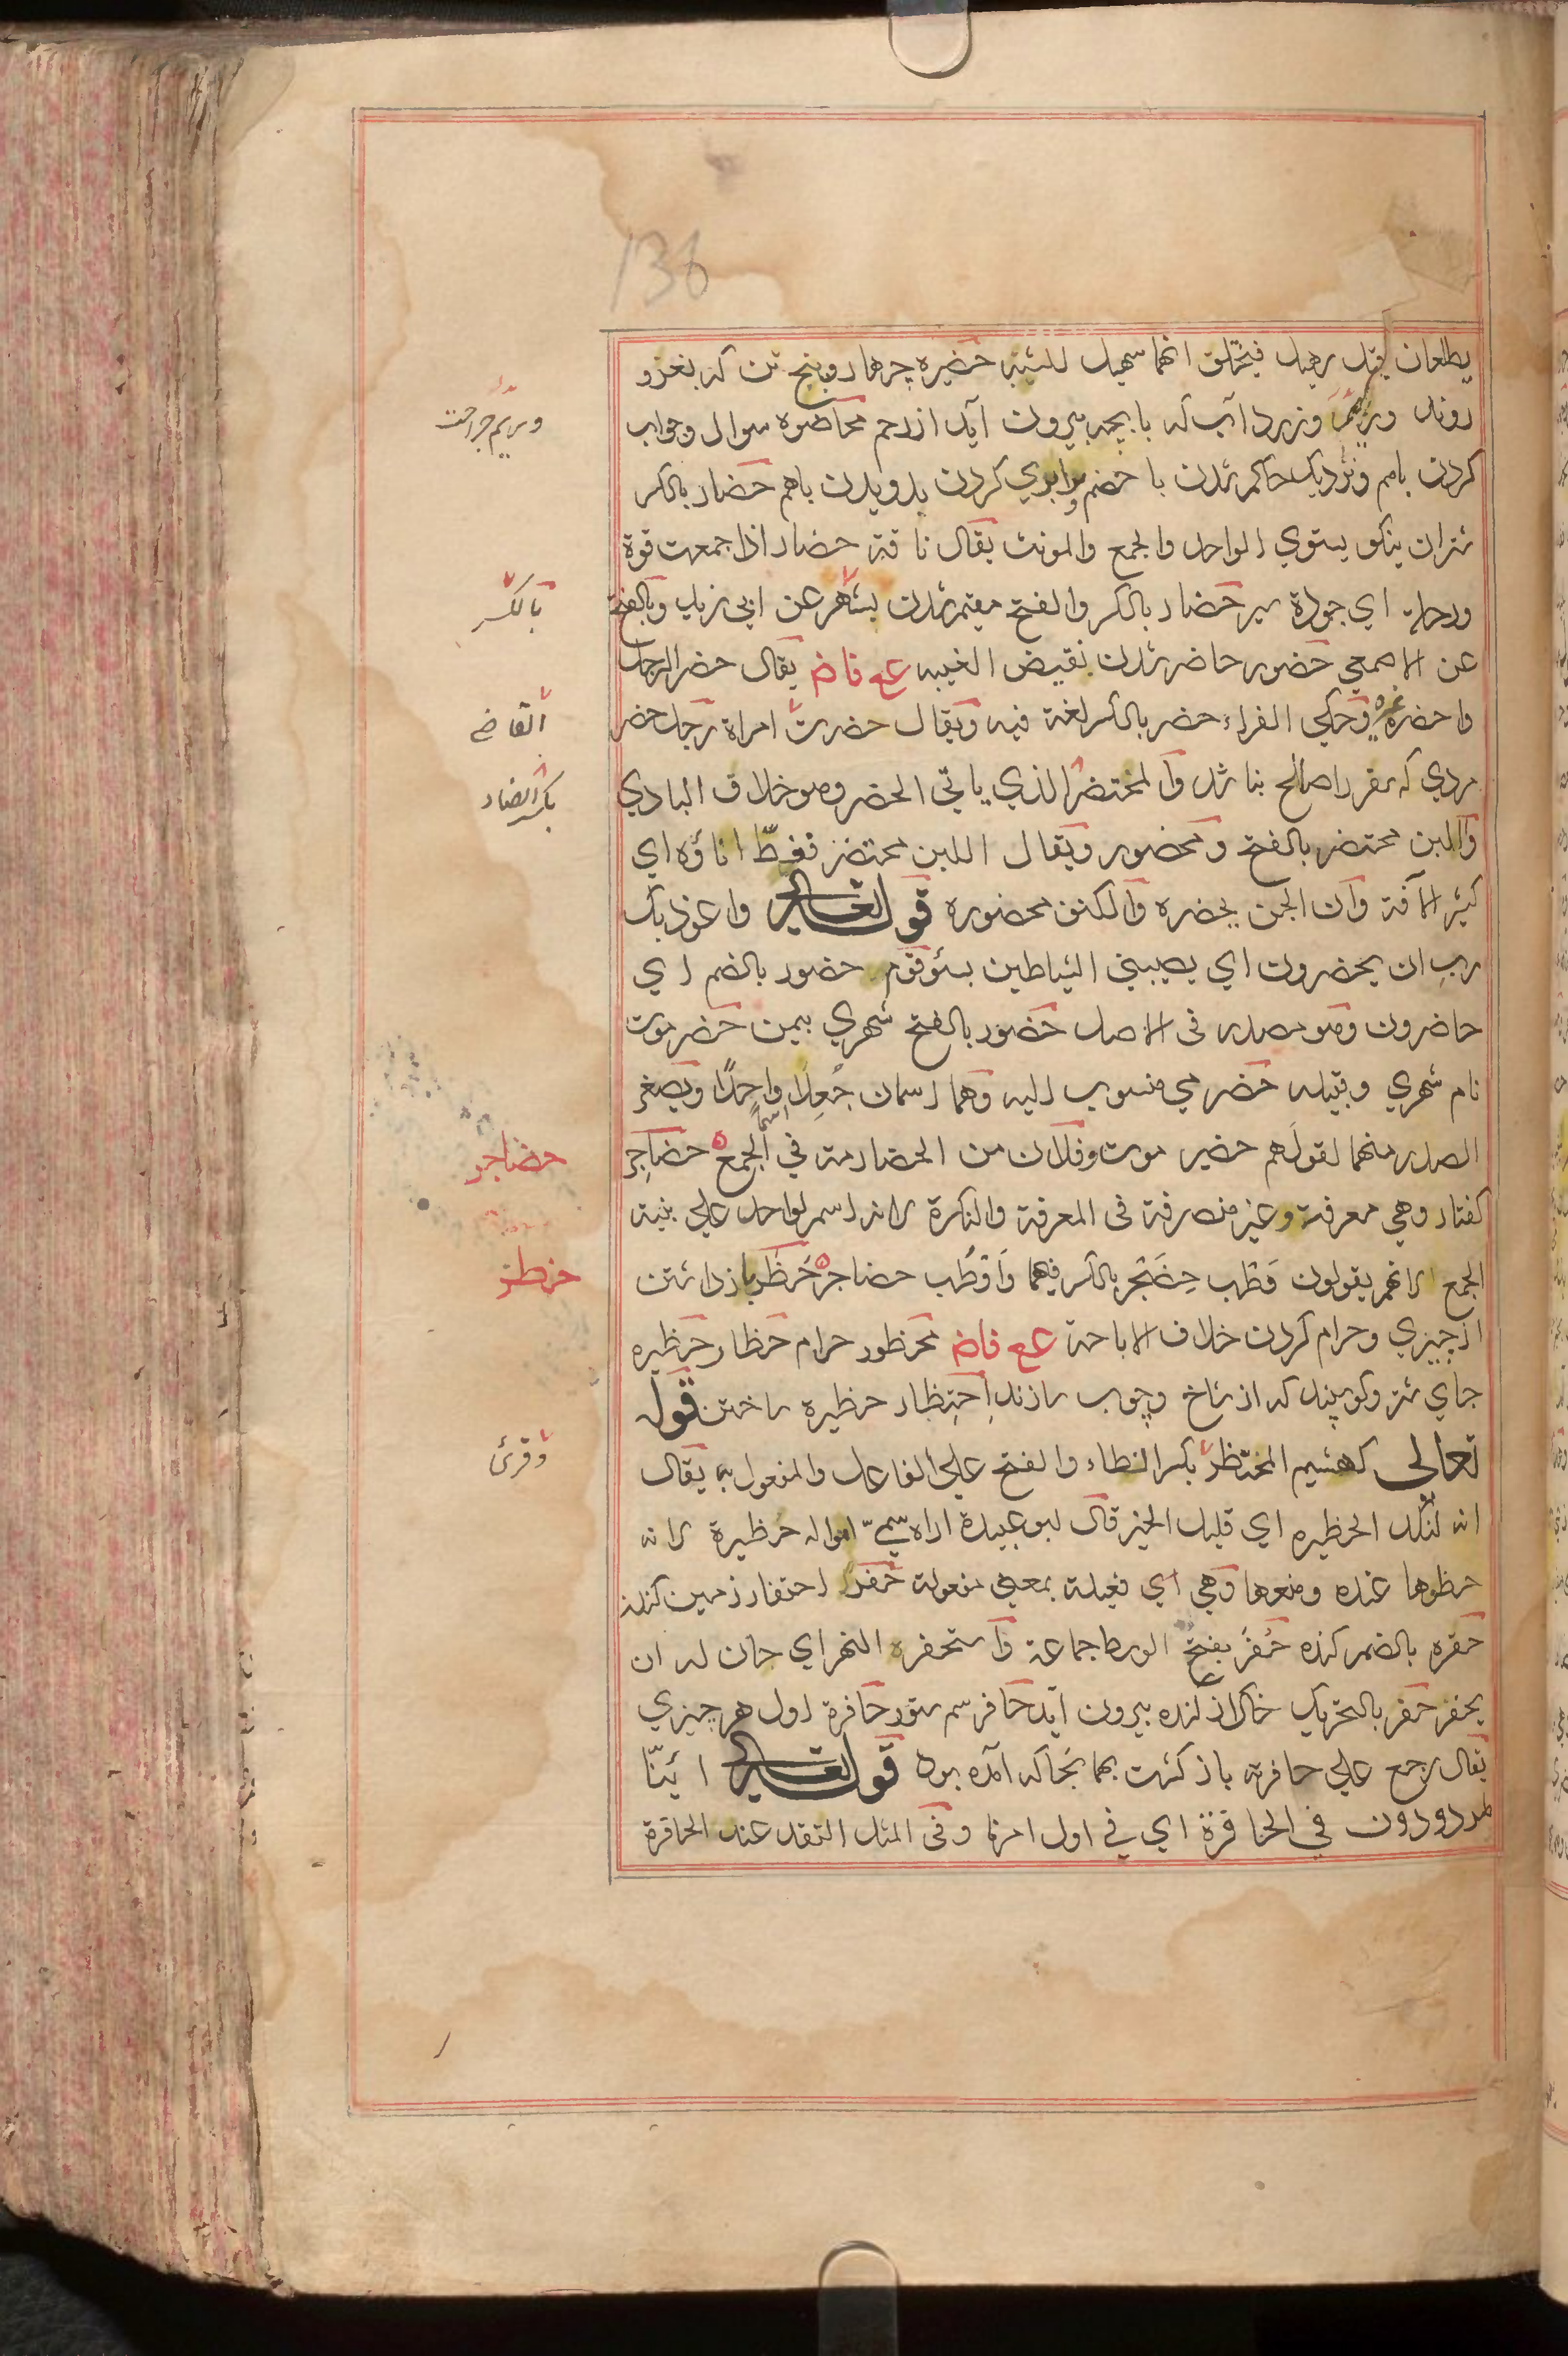 136
يطلعان قبل سهيل فيختلق انهما سهيل للشبه حضيره چهار و پنج تن كه بغزو
روند وريم وزرداب كه با بچه بيرون آيد از رحم محاضره سوال وجواب
كردن باهم ونزديك حاكم شدن با خصم وبرابري كردن بدويدن باهم حضار بالكسر
شتران نيكو يستوي الواحد والجمع والمونث يقال ناقة حضار اذا جمعت قوة
ورحلة اي جودة سير حضار بالكسر والفتح مقيم شدن بشهر عن ابي زيد وبالفتح
عن الاصمعي حضور حاضر شدن نقيض الغيبه ع ع فاض يقال حضر الرجل
واحضره غيره وحكي الفراء حضر بالكسر لغة فيه ويقال حضرت امراة رجل حضر
مردي كه سفر را صالح نباشد والمحتضر الذي ياتي الحضر وهو خلاف البادي
واللبن محتضر بالفتح ومحضور ويقال اللبن محتضر فغطّ اناؤه اي
كثير الآفة وان الجن يحضره والكنف محضوره قوله تعالى واعوذ بك
ربِ ان يحضرون اي يصيبني الشياطين بسوء قوم حضور بالضم اي
حاضرون وهو مصدر في الاصل حضور بالفتح شهري بيمن حضرموت
نام شهري وقبيله حضرمي منسوب اليه وهما اسمان جُعِلَا واحدًا ويصغر
اسمًا
الصدر منهما لقولهم حضير موت وفلان من الحضارمة في الجمع حضاجر
كفتار وهي معرفة وغير منصرفة في المعرفة والنكرة لانه اسم لواحد علي بنية
الجمع لانهم يقولون وَطْب حِضَجْر بالكسر فيهما وَاَوْطُب حضاجر حَظْر بازداشتن
از چيزي وحرام كردن خلاف الاباحة ع ع فاض محظور حرام حظار حظيره
جاي شتر وكوسپند كه از شاخ وچوب سازند اِحتِظار حظيره ساختن قوله
تعالى كهشيم المحتظر بكسر الظاء والفتح علي الفاعل والمفعول به يقال
انه لنكد الحظيره اي قليل الخير قال ابو عبيدة اراه سمي امواله حظيرة لانه
حظرها عنده ومنعها وهي اي فعيلة بمعني مفعولة حفر احتفار زمين كندن
حفره بالضم كنده حُفَر بفتح الوسط جماعة واستحفره النهر اي حان له ان
يحفر حفر بالتحريك خاك از كنده بيرون آيد حافر سم ستور حافرة اول هر چيزي
يقال رجع علي حافرته بازكشت بهمانجا كه آمده بود قوله تعالى ائنّا
لمردودون في الحافرة اي في اول امرنا وفي المثل النقد عند الحافرة
وريم جراحت
بالكسر
القاض
بكسر الضاد
حضاجر
حظر
وقرئ